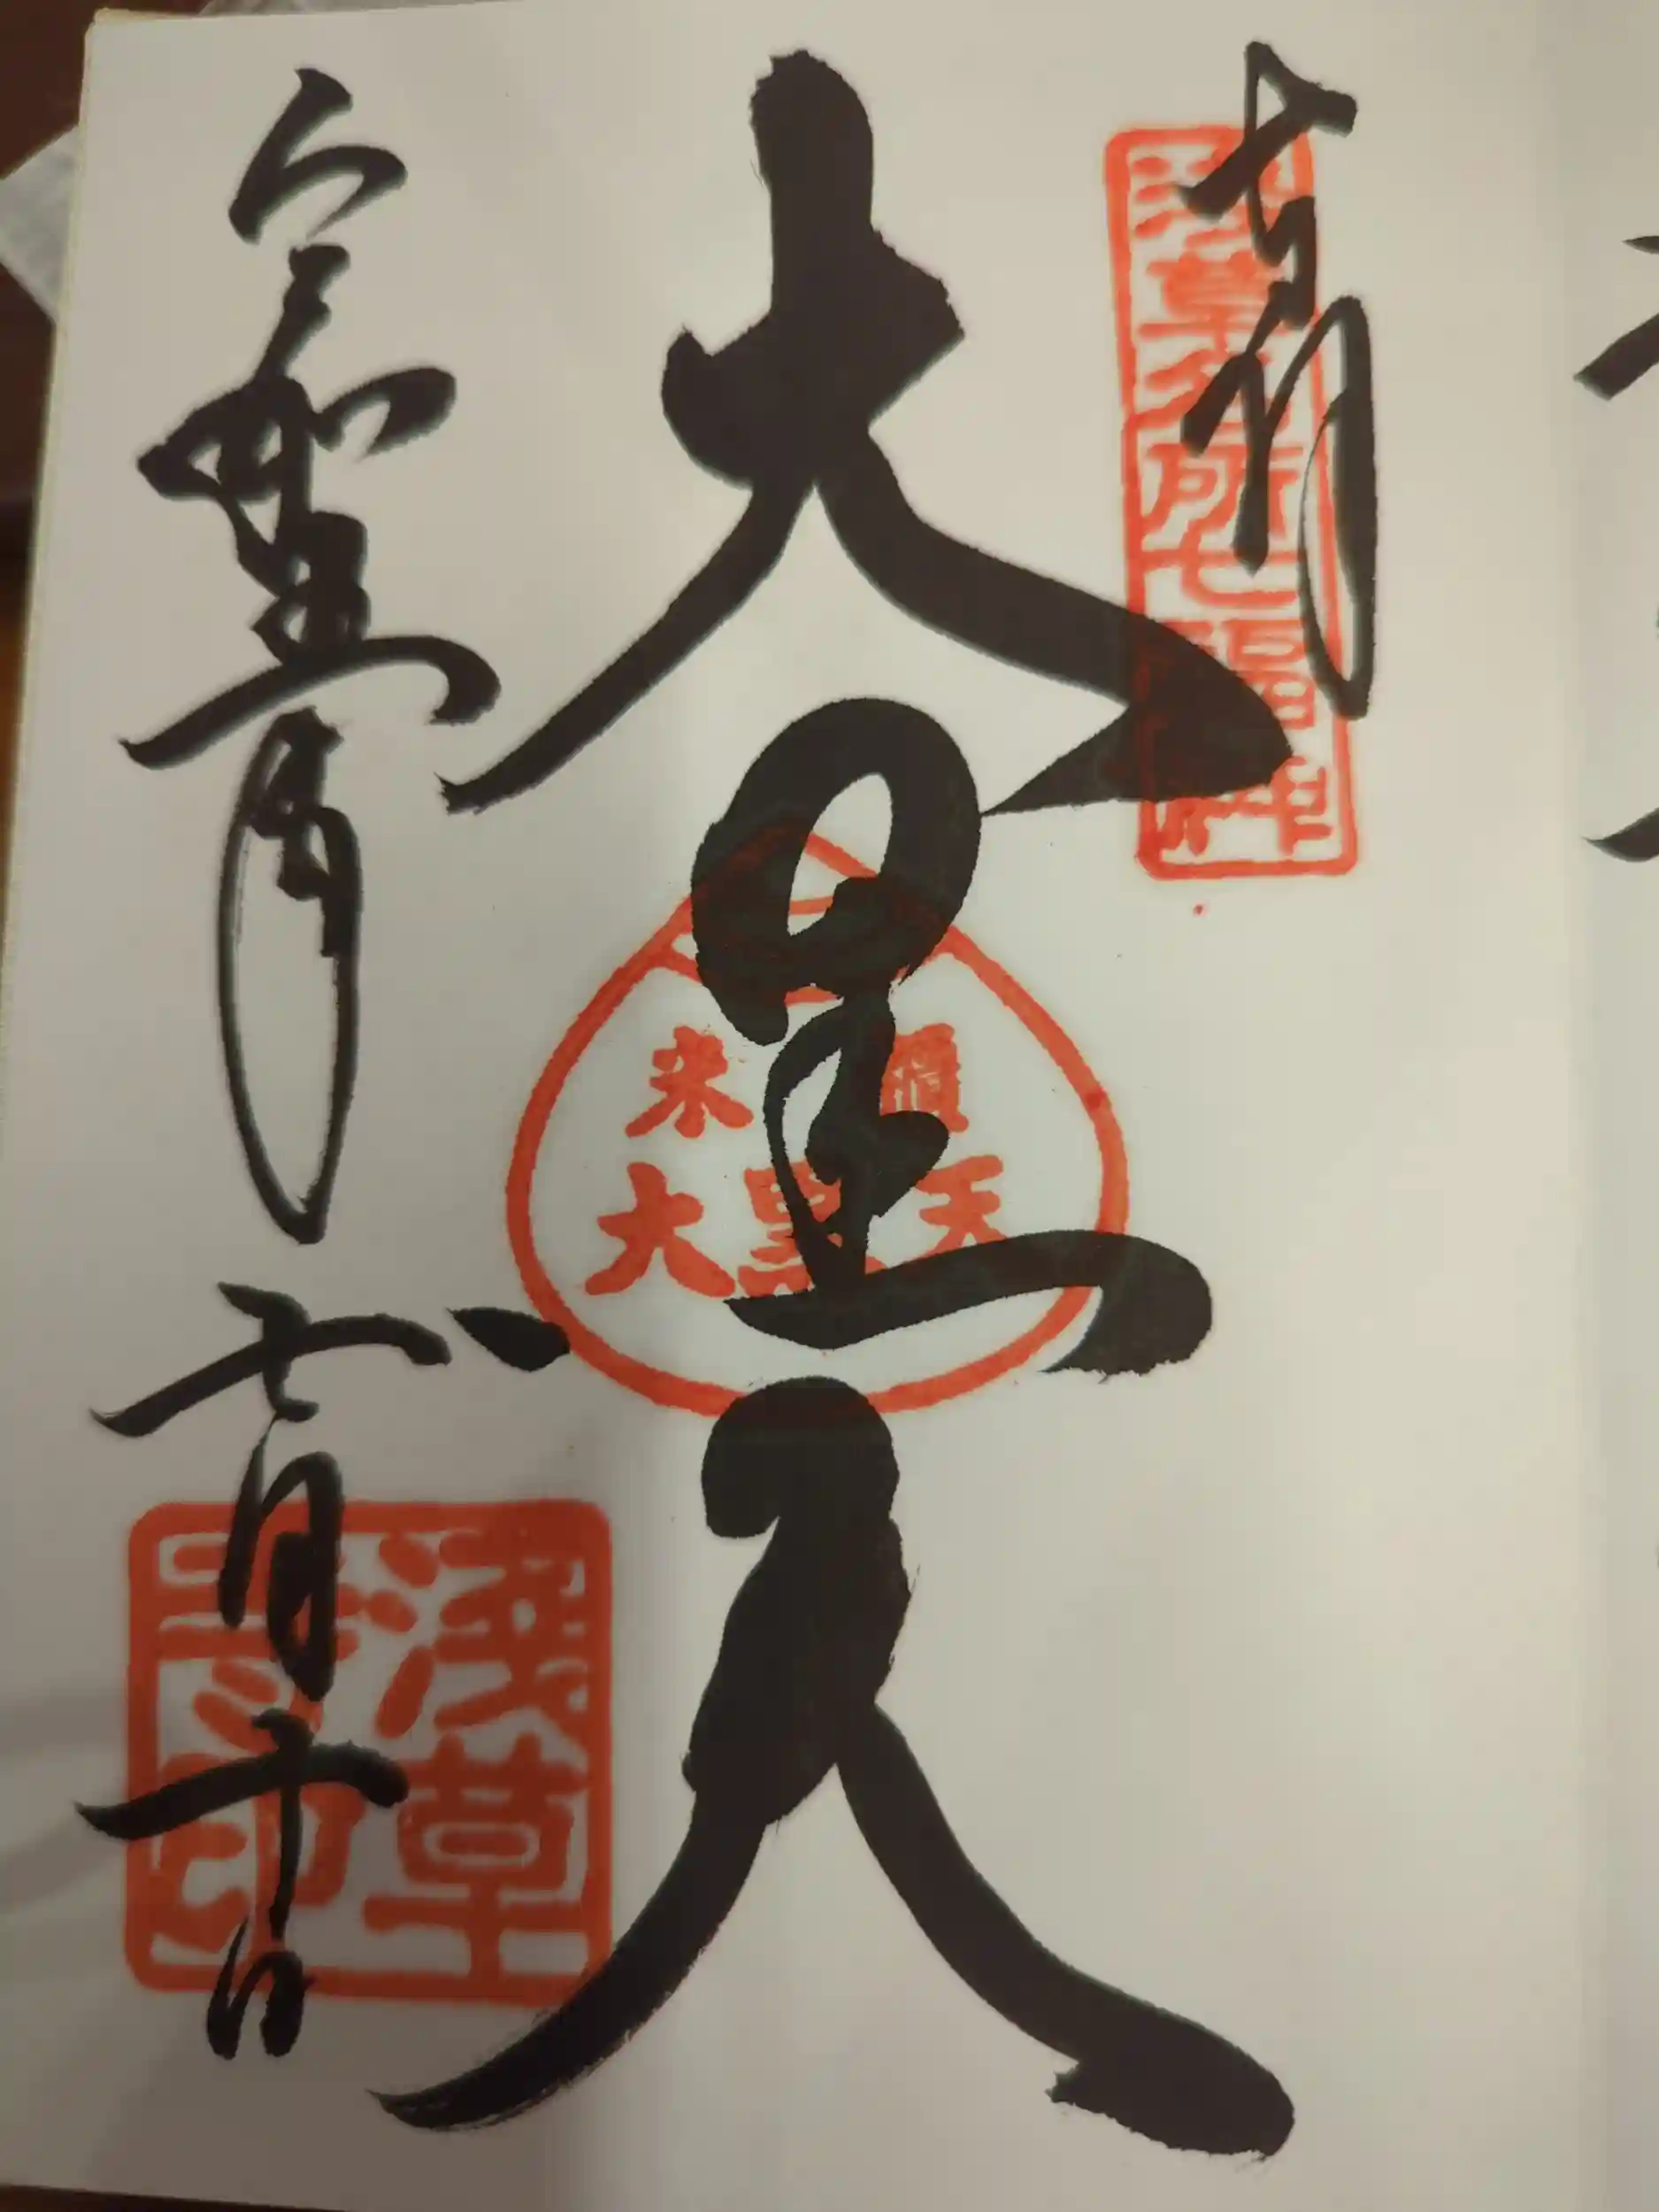 奉拝
浅草名所七福神
大黒天
米
大黒天
令和五年
月十日
浅草
寺印